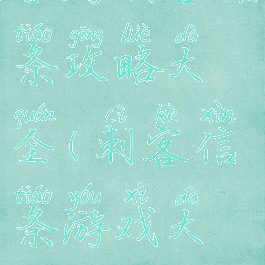 tiáo gōng lüè dà
条攻略大
quán cì kè xìn
全(刺客信
tiáo yóu xì dà
条游戏大